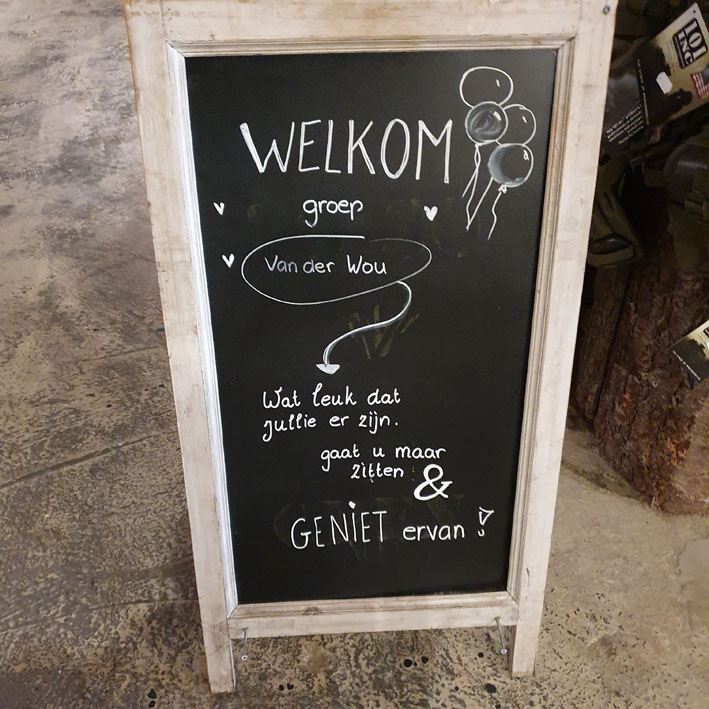 WELKOM
groep
Van der Wou
Wat leuk dat
jullie er zijn.
gaat u maar
zitten
&
GENIET ervan !
101
INC